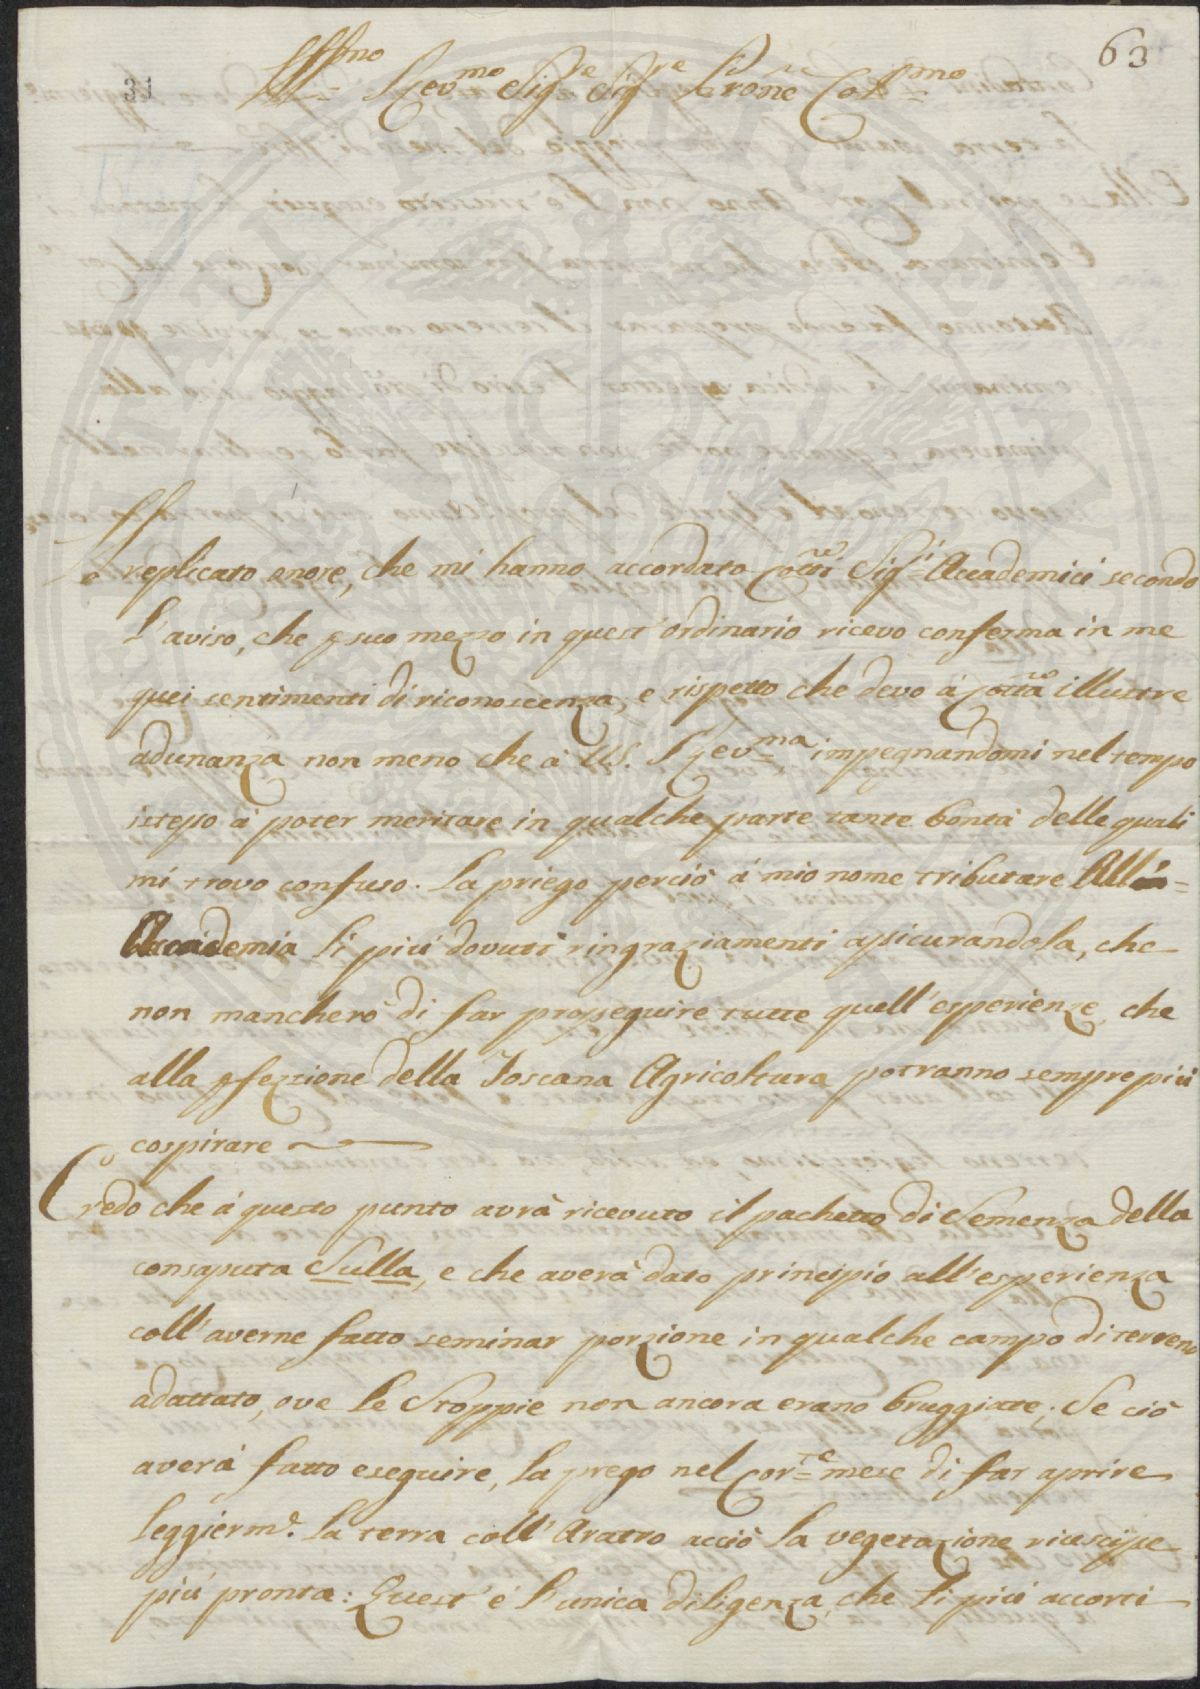 63
31
Ill^mo Rev^mo Sig^re Sig^re P̃rone Col^mo
Lo replicato onore, che mi hanno accordato cotti Sig^ri Accademici secondo
l'aviso, che p suo mezzo in quest'ordinario ricevo conferma in me
quei sentimenti di riconoscenza, e rispetto che devo á cotta illustre
adunanza non meno che à VS. Rev^ma impegnandomi nel tempo
istesso á poter meritare in qualche parte tante bontà delle quali
mi trovo confuso. La priego perciò á mio nome tributare All'=
Accademia li più dovuti ringraziamenti assicurandola, che
non mancherò di far prosseguire tutte quell'esperienze, che
alla pfezione della Toscana Agricoltura potranno sempre più
cospirare
Credo che á questo punto avrà ricevuto il pachetto di Semenza della
consaputa Sulla, e che averà dato principio all'esperienza
coll'averne fatto seminar porzione in qualche campo di terreno
adattato, ove le Stoppie non ancora erano bruggiate; Se ciò
averà fatto eseguire, la prego nel Cor^te mese di far aprire
leggierm^e. la terra coll'Aratro acciò la vegetazione riescisse
più pronta: Quest'é l'unica diligenza, che li più accorti